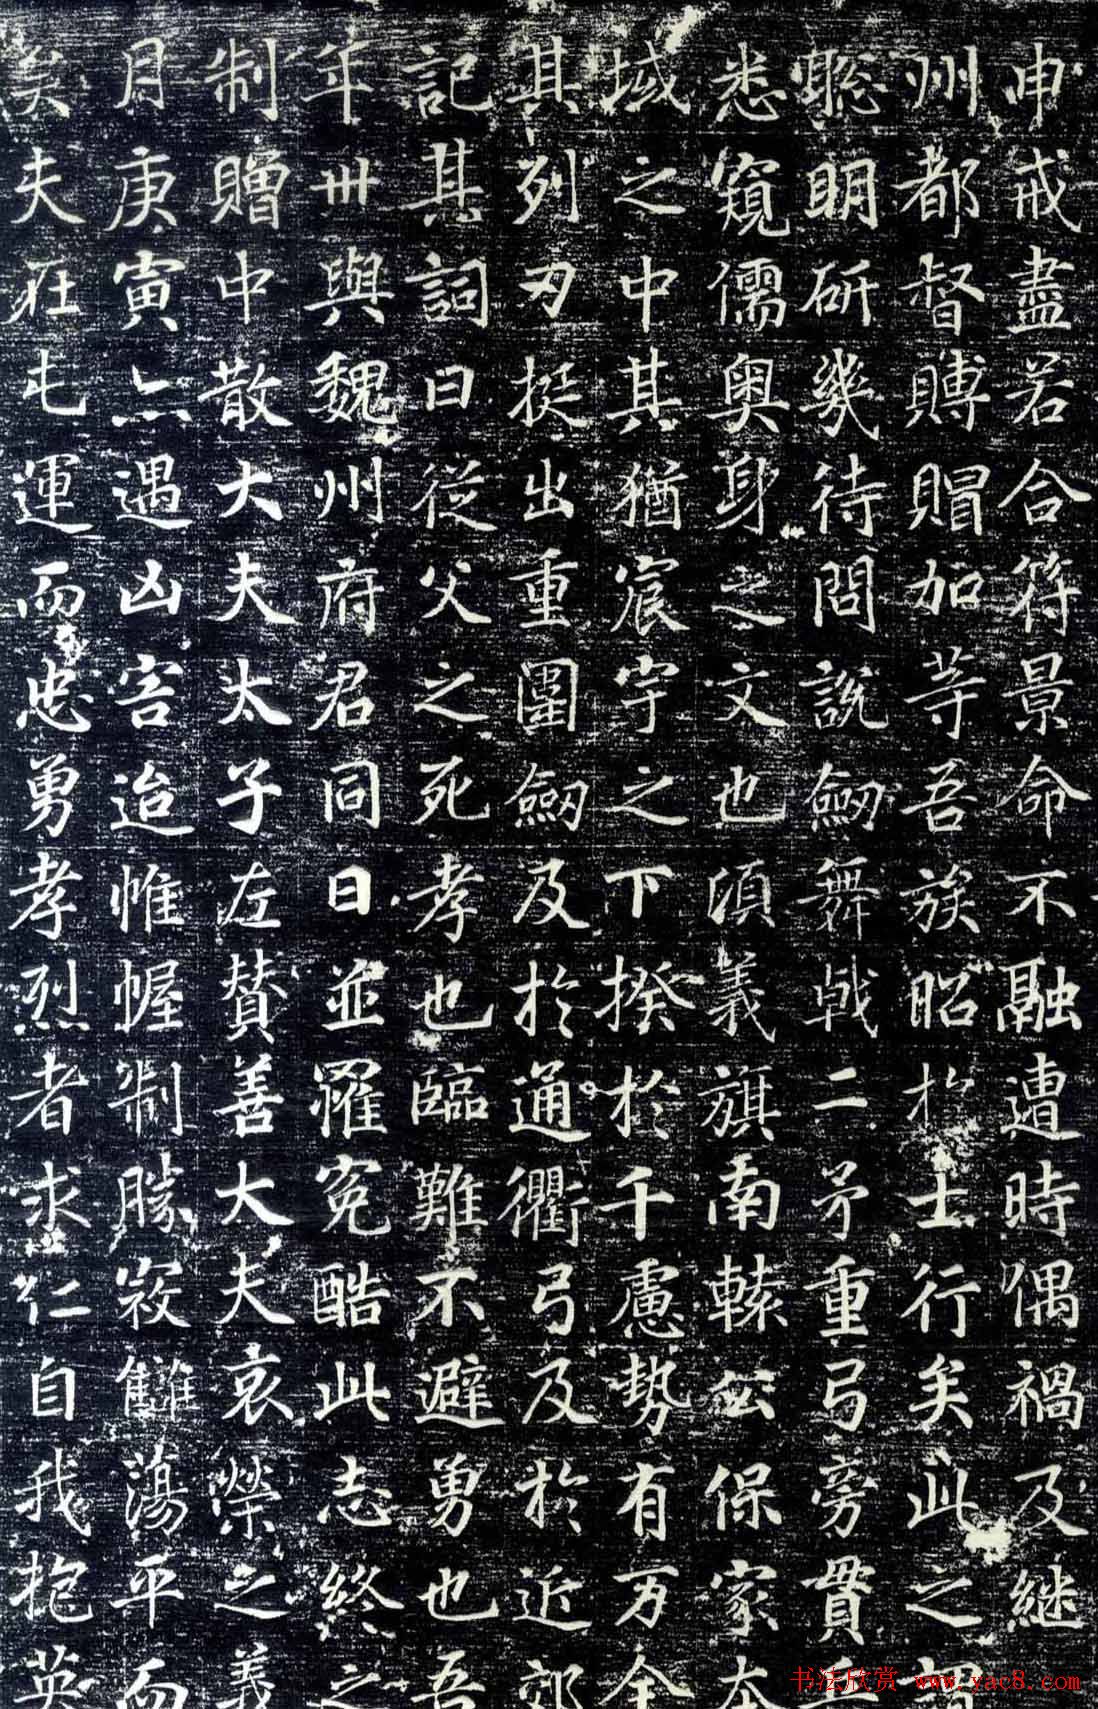 申戒盡若合符景命不融遭時偶禍及继
州都督賻賵加等吾族昭於士行矣此之
聡明研幾待問說劒舞戟二矛重弓旁貫
悉窺儒奥身之文也湏義旗南轅公保家本
域之中其猶宸宇之下揆於千慮勢有万全
其列刃挺出重圍劒及於通衢弓及於近郊
記其詞曰從父之死孝也臨難不避勇也吾
年卌與魏州府君同日並罹寃酷此志終之
制贈中散大夫太子左賛善大夫哀榮之義
月庚寅亦遇凶害迨帷幄制勝寇讎蕩平而
矣夫在屯運而忠勇孝烈者求仁自我抱英
书法欣赏 www.yac8.com